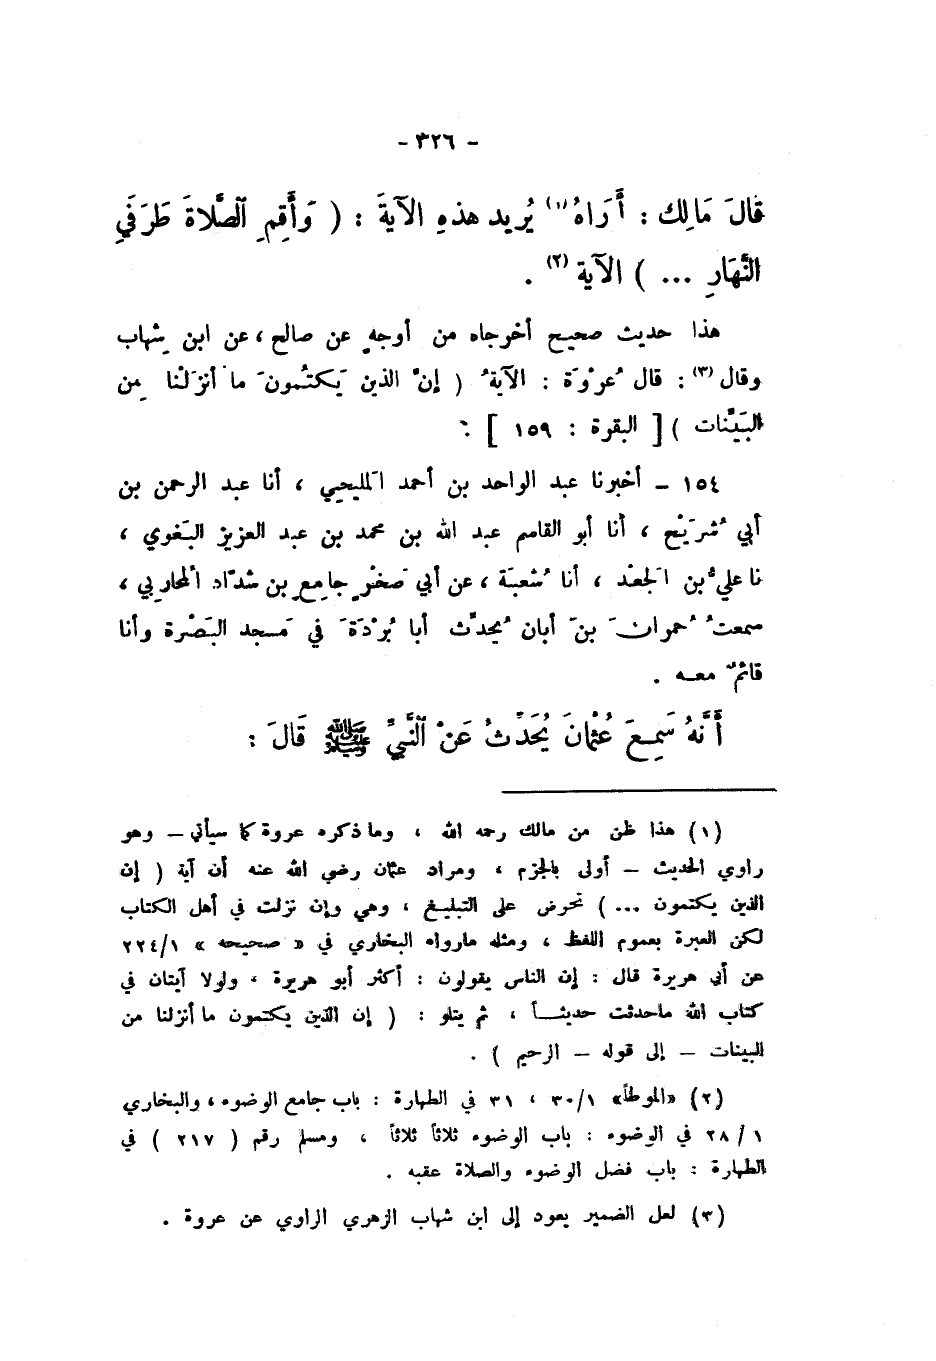 - ٣٢٦ -
قَالَ مَالِك : أَرَاهُ (١) يُرِيد هذِهِ الآيَةَ : ( وَأَقِمِ الصَّلاةَ طَرَفَيِ
النَّهَارِ ... ) الآيَة (٢) .
هذا حديث صحيح أخرجاه من أوجهٍ عن صالح ، عن ابن شِهاب
وقال (٣) : قال عُرْوَة : الآيةُ ( إنْ الذين يَكتُمونَ ما أَنزَلْنا مِن
البَيِّنات ) [ البقرة : ١٥٩ ] .
١٥٤ – أخبرنا عبد الواحد بن أحمد المَليحِي ، أنا عبد الرحمن بن
أبي شُرَيْح ، أنا أبو القاسم عبد الله بن محمد بن عبد العزيز البَغوي ،
نا عليُّ بن الجَعْد ، أنا شُعبَة ، عن أبي صَخْرٍ جامِعِ بن شدَّاد المُحارِبي ،
سمعتُ حُمرانَ بنَ أبان يُحدِّث أبا بُرْدَةَ في مَسجد البَصْرة وأنا
قائمٌ معه .
أَنَّهُ سَمِعَ عُثْمَانَ يُحَدِّثُ عَنْ النَّبِيِّ ﷺ قَالَ :
(١) هذا ظن من مالك رحمه الله ، وما ذكره عروة كما سيأتي – وهو
راوي الحديث – أولى بالجزم ، ومراد عثمان رضي الله عنه أن آية ( إن
الذين يكتمون ... ) تحرض على التبليغ ، وهي وإن نزلت في أهل الكتاب
لكن العبرة بعموم اللفظ ، ومثله مارواه البخاري في « صحيحه » ٢٢٤/١
عن أبي هريرة قال : إن الناس يقولون : أكثر أبو هريرة ، ولولا آيتان في
كتاب الله ماحدثت حديثــاً ، ثم يتلو : ( إن الذين يكتمون ما أنزلنا من
البينات – إلى قوله – الرحيم ) .
(٢) «الموطأ» ٣٠/١ ، ٣١ في الطهارة : باب جامع الوضوء ، والبخاري
٢٨ / ١ في الوضوء : باب الوضوء ثلاثاً ثلاثاً ، ومسلم رقم ( ٢١٧ ) في
الطهارة : باب فضل الوضوء والصلاة عقبه .
(٣) لعل الضمير يعود إلى ابن شهاب الزهري الراوي عن عروة .